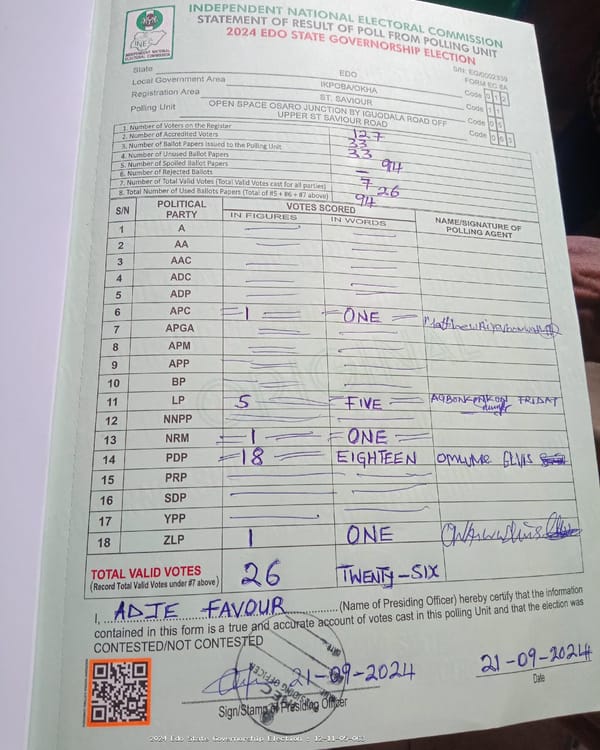 INDEPENDENT NATIONAL ELECTORAL COMMISSION
STATEMENT OF RESULT OF POLL FROM POLLING UNIT
2024 EDO STATE GOVERNORSHIP ELECTION
INEC
INDEPENDENT NATIONAL ELECTORAL COMMISSION
FORM EC 8A
State EDO Code 1 2
Local Government Area IKPOBA/OKHA Code 1 1
Registration Area ST. SAVIOUR Code 0 5
Polling Unit OPEN SPACE OSARO JUNCTION BY IGUODALA ROAD OFF UPPER ST SAVIOUR ROAD Code 0 6 3
1. Number of Voters on the Register 127
2. Number of Accredited Voters 33
3. Number of Ballot Papers Issued to the Polling Unit
33
4. Number of Unused Ballot Papers 94
5. Number of Spoiled Ballot Papers –
6. Number of Rejected Ballots 7
7. Number of Total Valid Votes (Total Valid Votes cast for all parties) 26
8. Total Number of Used Ballots Papers (Total of #5 + #6 + #7 above) 94
S/N POLITICAL PARTY VOTES SCORED NAME/SIGNATURE OF POLLING AGENT
IN FIGURES IN WORDS
1 A
2 AA
3 AAC
4 ADC
5 ADP
6 APC 1 ONE
7 APGA
8 APM
9 APP
10 BP
11 LP 5 FIVE FRIDAY
12 NNPP
13 NRM 1 ONE
14 PDP 18 EIGHTEEN ELVIS
15 PRP
16 SDP
17 YPP
18 ZLP 1 ONE
TOTAL VALID VOTES 26 TWENTY-SIX
(Record Total Valid Votes under #7 above)
I, ADJE FAVOUR (Name of Presiding Officer) hereby certify that the information
contained in this form is a true and accurate account of votes cast in this polling Unit and that the election was
CONTESTED/NOT CONTESTED
21-09-2024 21-09-2024
Sign/Stamp of Presiding Officer Date
2024 Edo State Governorship Election - 12-11-05-063